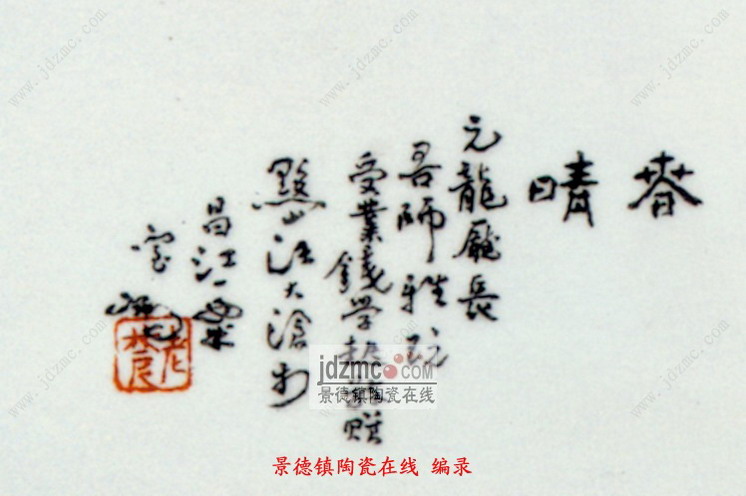 春晴
元龍廳長
吾師雅玩
受業錢学 贈
黟山汪大滄書
昌江
jdzmc.com
景德镇陶瓷在线
景德镇陶瓷在线 编录
www.jdzmc.com